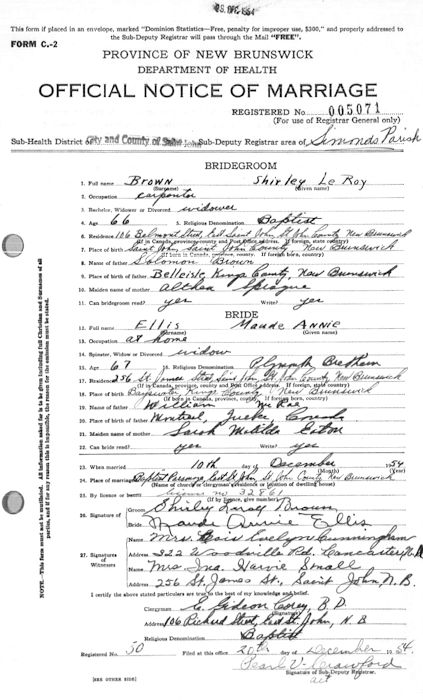 29. DEC. 1954
This form if placed in an envelope, marked "Dominion Statistics—Free, penalty for improper use, $300," and properly addressed
to the Sub-Deputy Registrar will pass through the Mail "FREE".
FORM C.-2
PROVINCE OF NEW BRUNSWICK
DEPARTMENT OF HEALTH
OFFICIAL NOTICE OF MARRIAGE
REGISTERED No. 005071
(For use of Registrar General only)
Sub-Health District of City and County of Saint John Sub-Deputy Registrar area of Simonds Parish
BRIDEGROOM
1. Full name Brown Shirley Le Roy
(Surname) (Given name)
2. Occupation carpenter
3. Bachelor, Widower or Divorced widower
4. Age 66 5. Religious Denomination Baptist
6. Residence 106 Belmont Street, East Saint John, St. John County, New Brunswick
(If in Canada, province, county and Post Office address. If foreign, state country)
7. Place of birth Saint John, Saint John County, New Brunswick
(If born in Canada, province, county. If foreign born, country)
8. Name of father Solomon Brown
9. Place of birth of father Belleisle, Kings County, New Brunswick
10. Maiden name of mother Althea Sprague
11. Can bridegroom read? yes Write? yes
BRIDE
12. Full name Ellis Maude Annie
(Surname) (Given name)
13. Occupation at home
14. Spinster, Widow or Divorced widow
15. Age 67 16. Religious Denomination Plymouth Brethern
17. Residence 256 St. James Street, Saint John, St. John County, New Brunswick
18. Place of birth Kings County, New Brunswick
19. Name of father William
20. Place of birth of father Montreal, Canada
21. Maiden name of mother Sarah Matilda Eaton
22. Can bride read? yes Write? yes
23. When married 10th day of December 1954
(Month) (Year)
24. Place of marriage Baptist Parsonage, East St. John, St. John County, New Brunswick
(Name of church or clergyman's residence or location of dwelling house)
25. By licence or banns licence no 32861
(If by licence, give number)
26. Signature of
Groom Shirley Leroy Brown
Bride Maude Annie Ellis
27. Signatures of Witnesses
Name Mrs. Lois Evelyn Cunningham
Address 322 Woodville Rd. Lancaster N.B.
Name Mrs Ina Harvie Small
Address 256 St. James St., Saint John, N.B.
I certify the above stated particulars are true to the best of my knowledge and belief.
Clergyman E. Gideon Corey, B.D.
(Signature)
Address 106 Pickard Street, East St. John, N.B
Religious Denomination Baptist
Registered No. 50 Filed at this office 20th day of December 1954.
Pearl V. Crawford
Signature of Sub-Deputy Registrar.
act
[SEE OTHER SIDE]
NOTE.—This form must not be mutilated. All information asked for is to be given including full Christian and Surnames of all parties, and if for any reason this is impossible, the reason for the omission must be stated.